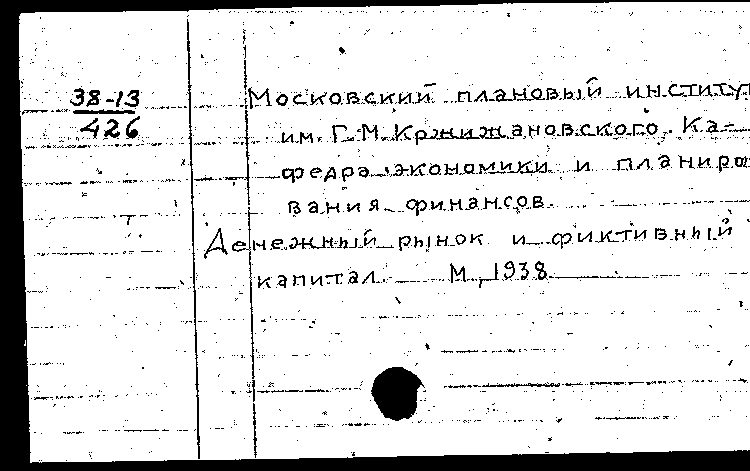 38-13
426
Московский плановый институт
им. Г.М. Кржижановского. Ка-
федра экономики и планиро
вания финансов.
Денежный рынок и фиктивный
капитал. М., 1938